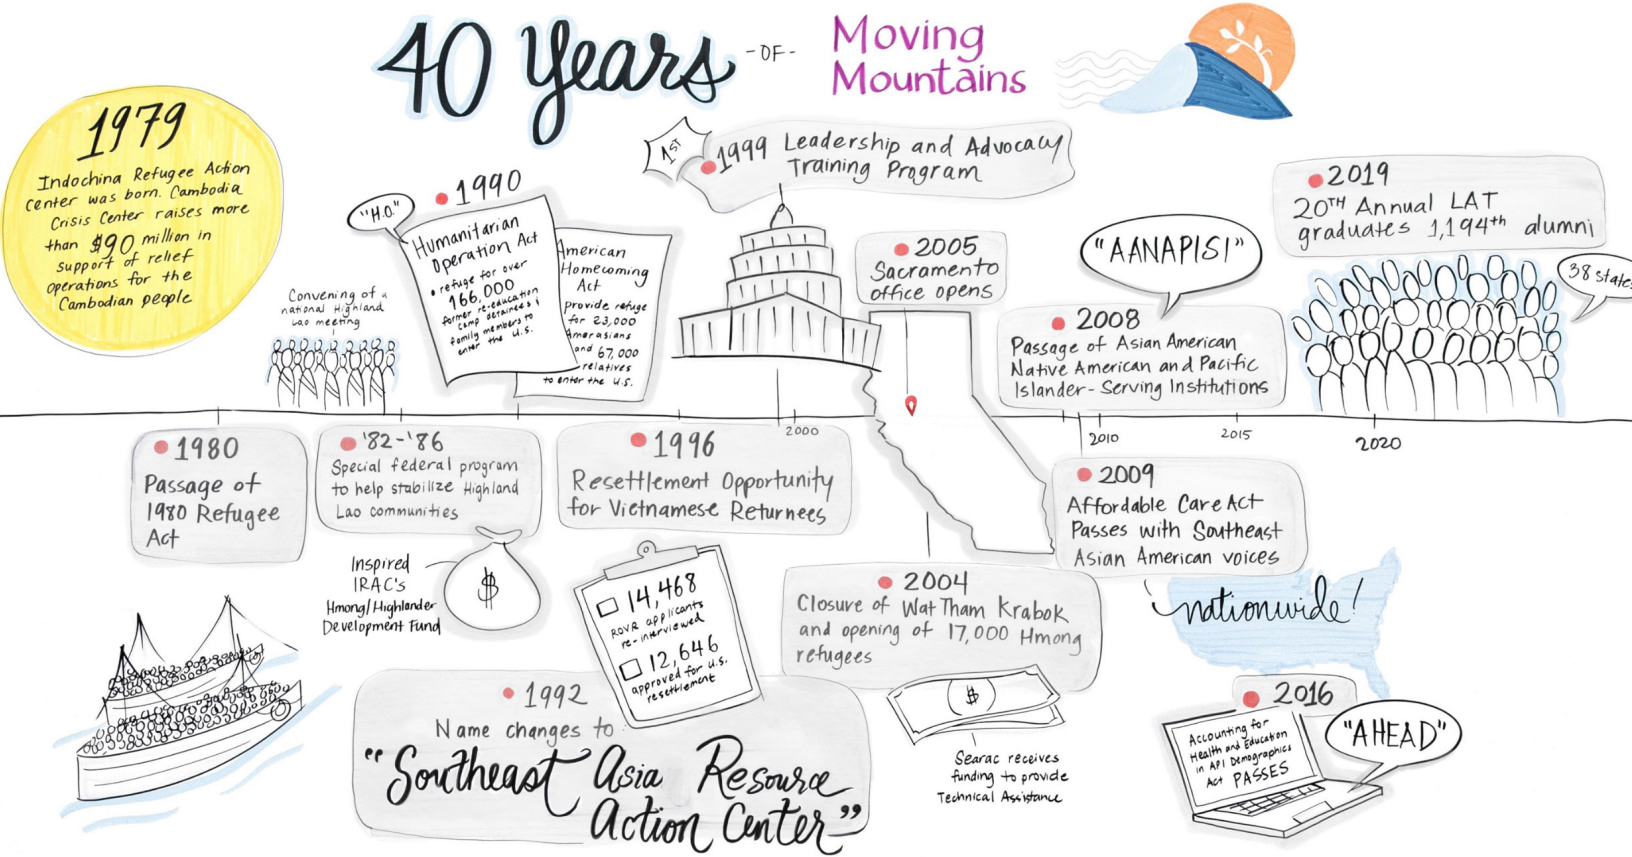 40 Years
-OF-
Moving
Mountains
1979
Indochina Refugee Action
center was born. Cambodia
Crisis Center raises more
than $90 million in
support of relief
operations for the
Cambodian people
Convening of a
national Highland
Lao meeting
"H.O."
1990
Humanitarian
Operation Act
• refuge for over
166,000
former re-education
camp detainees &
family members to
enter the U.S.
American
Homecoming
Act
provide refuge
for 23,000
Amerasians
and 67,000
relatives
to enter the U.S.
1ST
1999 Leadership and Advocacy
Training Program
2005
Sacramento
office opens
"AANAPISI"
2008
Passage of Asian American
Native American and Pacific
Islander-Serving Institutions
2019
20TH Annual LAT
graduates 1,194th alumni
38 states
2000
2010
2015
2020
1980
Passage of
1980 Refugee
Act
'82-'86
Special federal program
to help stabilize Highland
Lao communities
Inspired
IRAC's
Hmong/Highlander
Development Fund
$
1996
Resettlement Opportunity
for Vietnamese Returnees
14,468
ROVR applicants
re-interviewed
12,646
approved for U.S.
resettlement
1992
Name changes to
"Southeast Asia Resource
Action Center"
2004
Closure of Wat Tham Krabok
and opening of 17,000 Hmong
refugees
$
Searac receives
funding to provide
Technical Assistance
2009
Affordable Care Act
Passes with Southeast
Asian American voices
nationwide!
2016
Accounting for
Health and Education
in API Demographics
Act PASSES
"AHEAD"